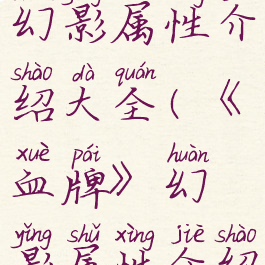 幻影属性介
shào dà quán
绍大全(《
xuè pái huàn
血牌》幻
yǐng shǔ xìng jiè shào